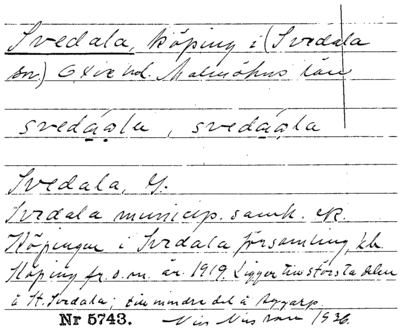 Svedala, köping i (Svedala
sn.) Oxie hd. Malmöhus län
svedáala, svedáala
Svedala, G.
Svedala municip. samh. ek.
Köpingen i Svedala församling, blev
köping fr. o. m. år 1919. Ligger till största delen
i St. Svedala; en mindre del å Aggarp.
Nr 5743. Nils 1936